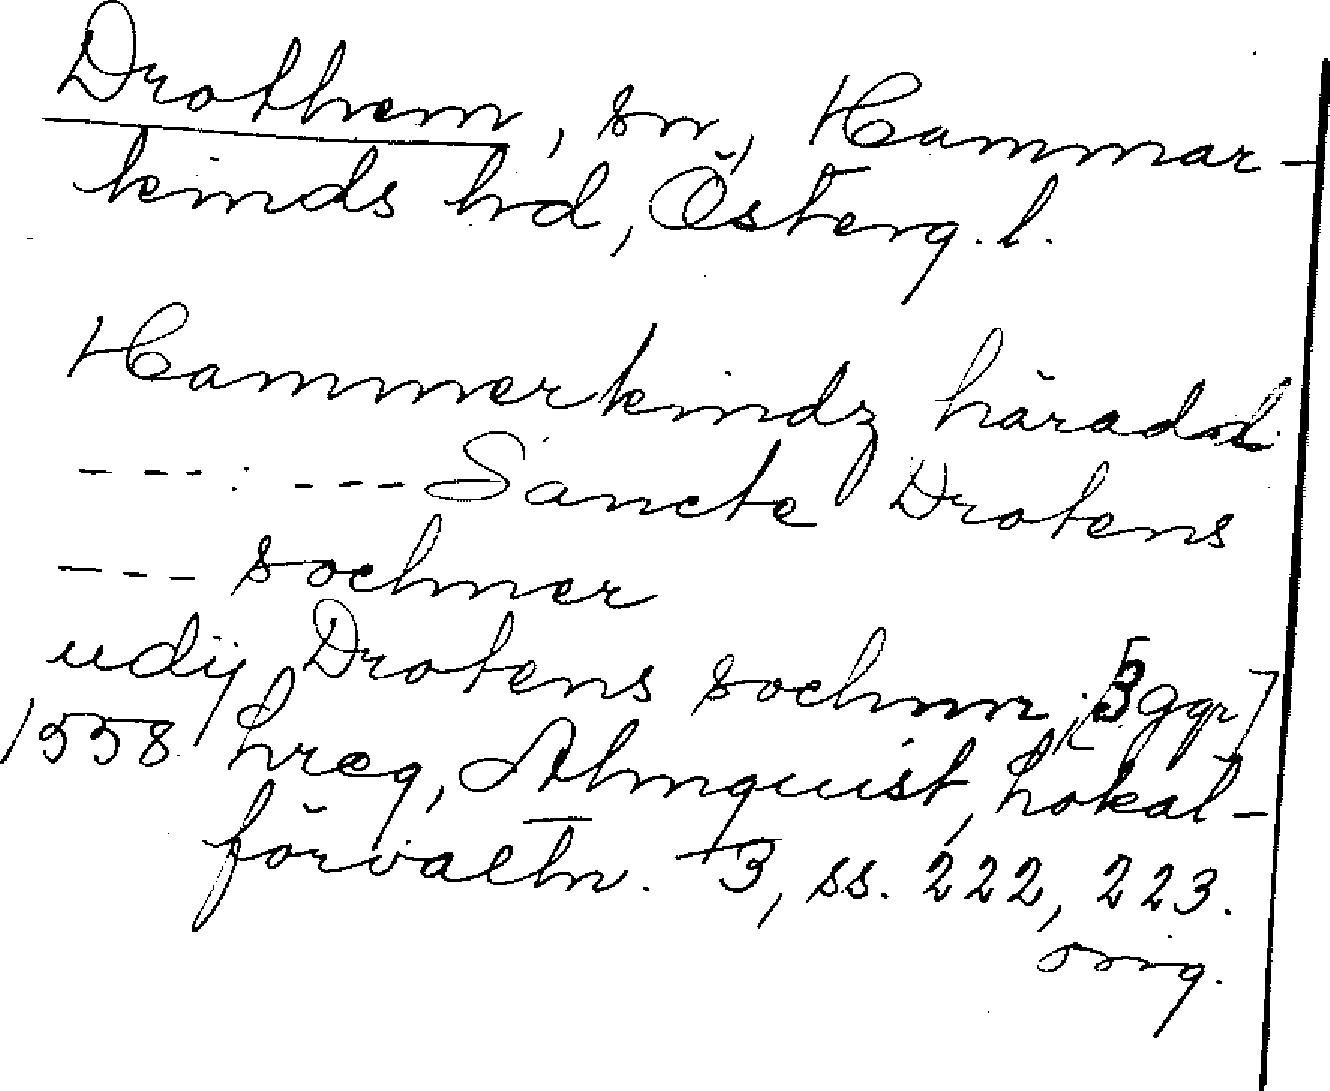 Drothem, sn, Hammar-
kinds hd, Österg. l.
Hammerkindz häradd
--- : --- Sancte Drotens
--- sochner
udij Drotens sochnn; [3 ggr]
1558 hreg, Almquist, Lokal-
förvaltn. 3, ss. 222, 223.
orig.